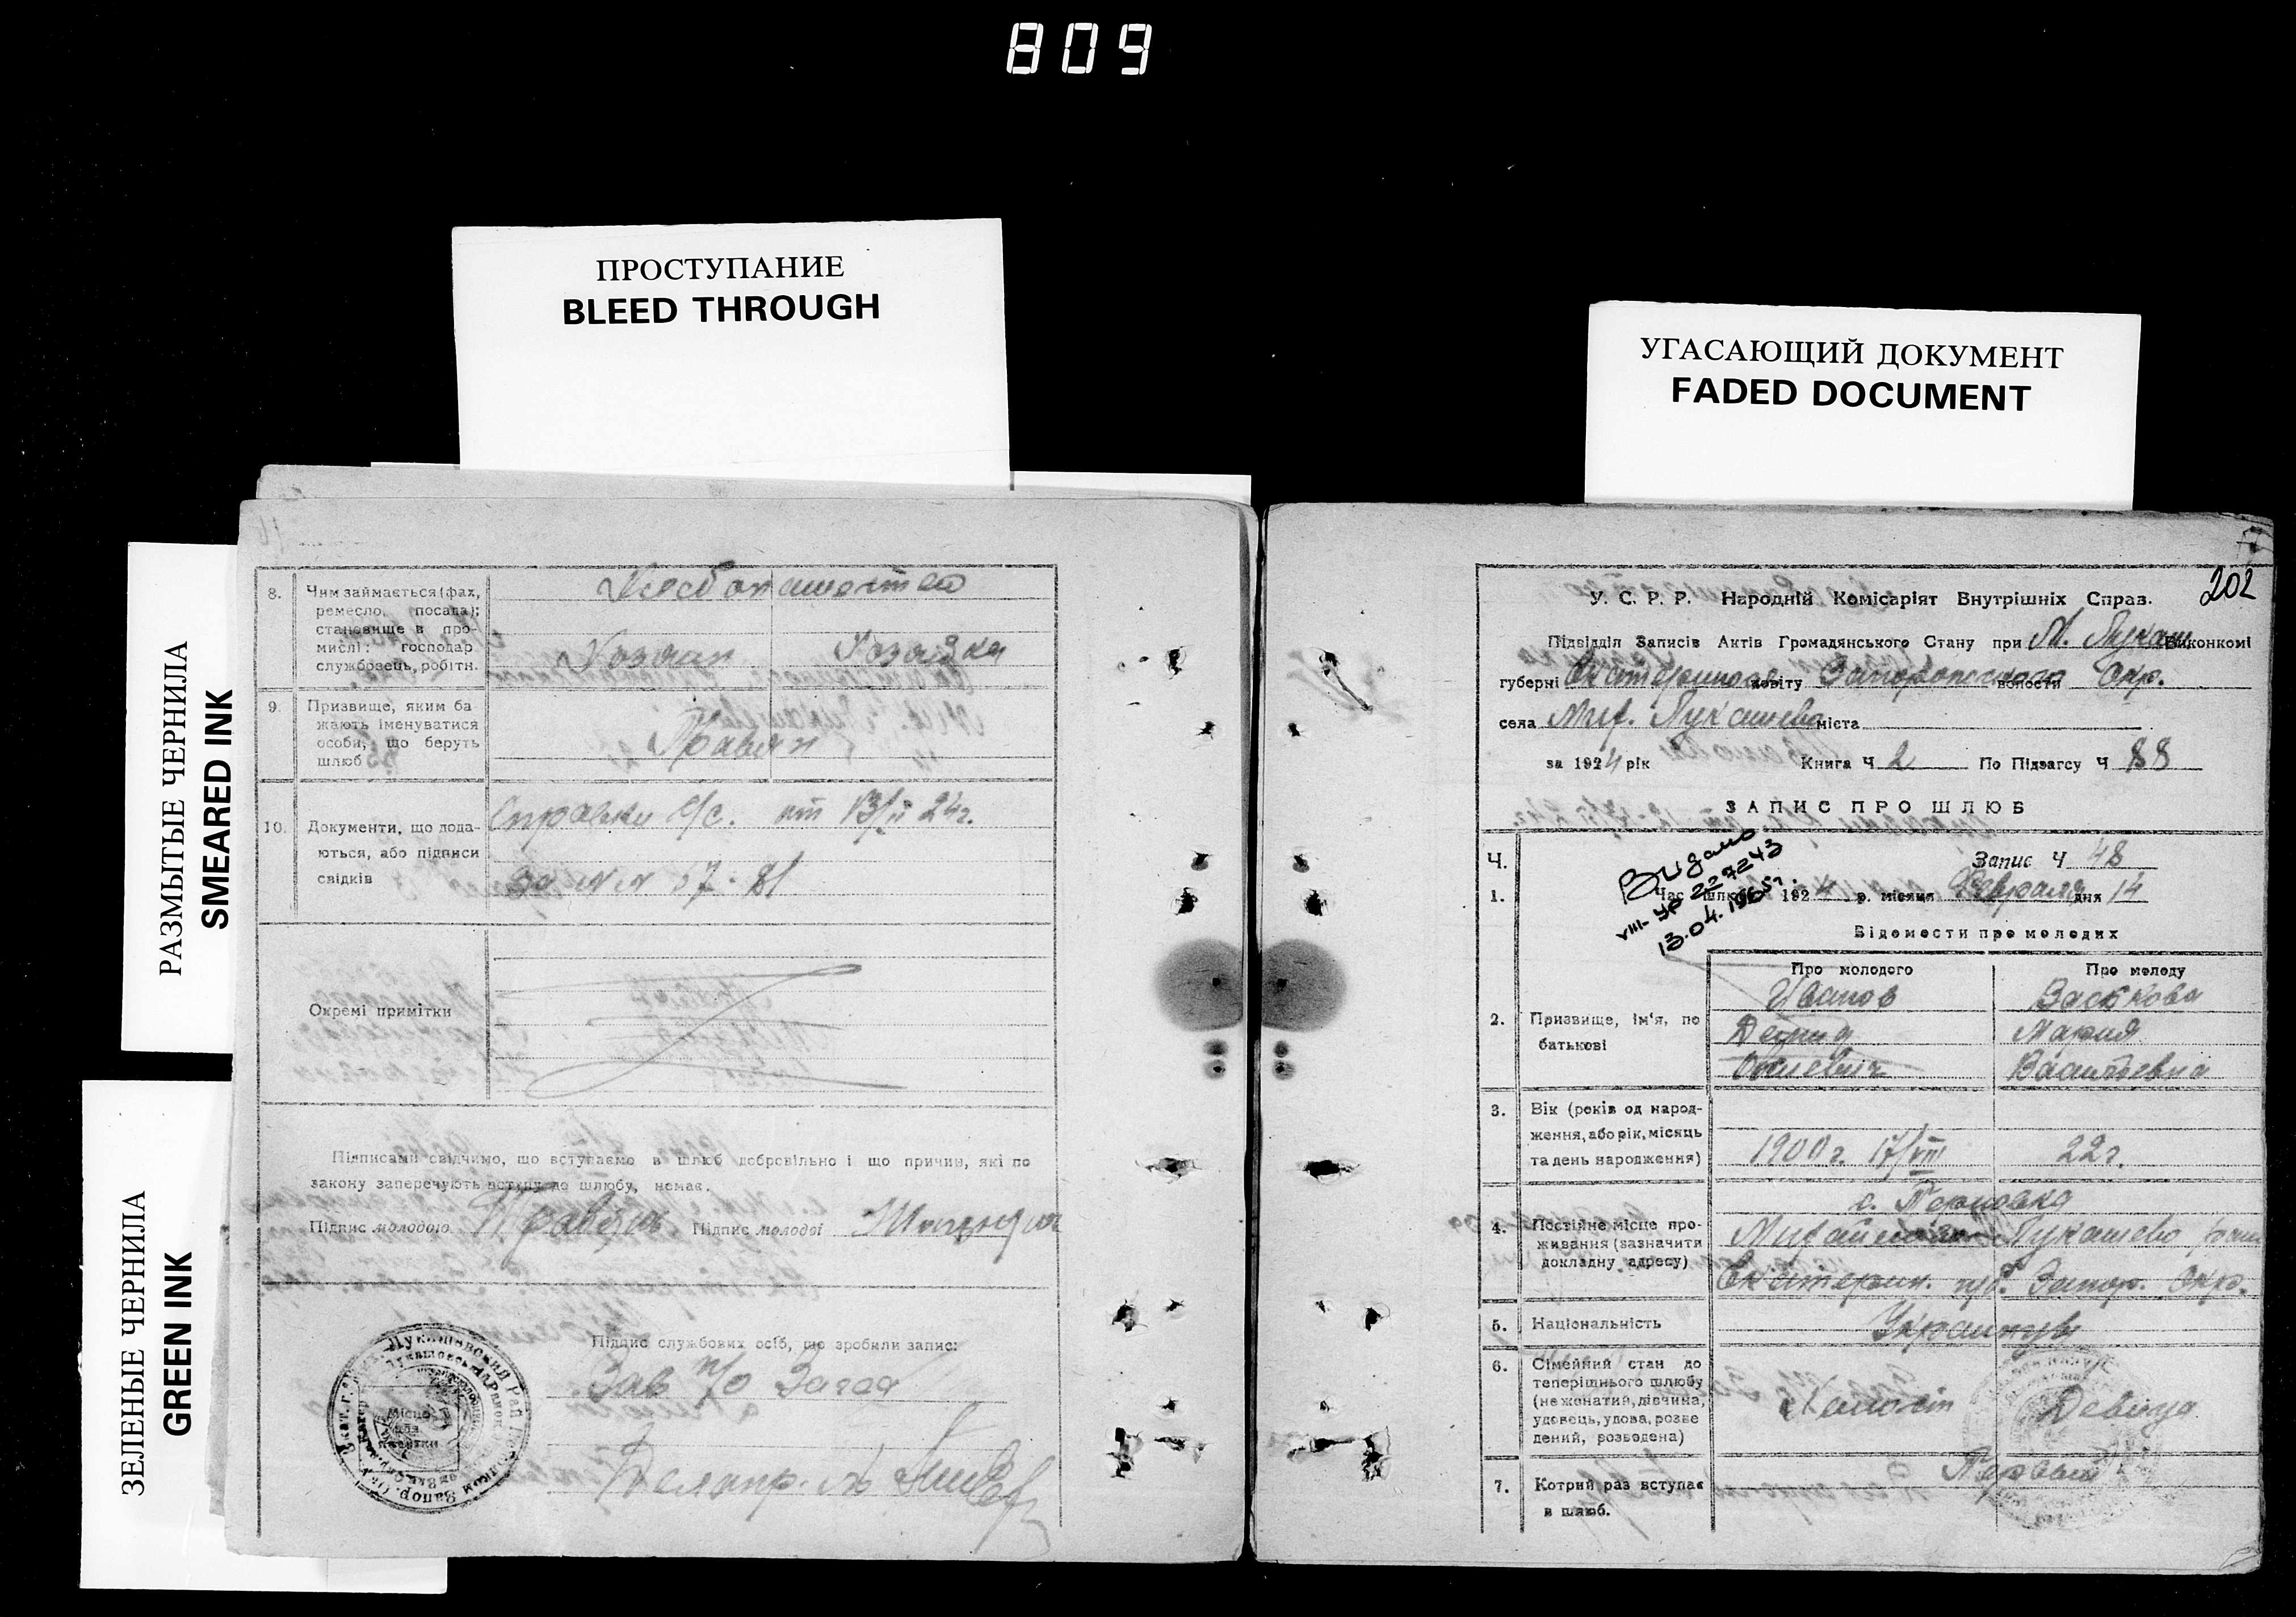 809
ПРОСТУПАНИЕ
BLEED THROUGH
УГАСАЮЩИЙ ДОКУМЕНТ
FADED DOCUMENT
РАЗМЫТЫЕ ЧЕРНИЛА
SMEARED INK
ЗЕЛЕНЫЕ ЧЕРНИЛА
GREEN INK
8.
Чим займається (фах,
ремесло, посада);
становище в про-
мислі: господар
службовець, робітн.
Хлебопашество
Хозяин Хозяйка
9.
Призвище, яким ба
жають іменуватися
особи, що беруть
шлюб
10.
Документи, що дода-
ються, або підписи
свідків
Справки с/с. от 13/II 24г.
за NN 57-81
Окремі примітки
Підписами свідчимо, що вступаємо в шлюб добровільно і що причин, які по
закону заперечують вступу до шлюбу, немає.
Підпис молодого Підпис молодої
Підпис службових осіб, що зробили запис:
Зав п/о Загса
Делопр.
Місце
для
печатки
202
У. С. Р. Р. Народній Комісаріят Внутрішніх Справ.
Підвідділ Записів Актів Громадянського Стану при М. Лукаш Виконкомі
губерні повіту волости Окр.
села Мих. Лукашево міста
за 1924 рік Книга Ч 2 По Підзагсу Ч 88
ЗАПИС ПРО ШЛЮБ
Видано
VIII-УР 227243
13.04.
Ч. Запис Ч 48
1. Час шлюбу 1924 р. місяця Февраля дня 14
Відомости про молодих
Про молодого Про молоду
2.
Призвище, ім'я, по
батькові
Иванов
Мария
Васильевна
3.
Вік (років од народ-
ження, або рік, місяць
та день народження)
1900г. 17/VIII 22г.
4.
Постійне місце про-
живання (зазначити
докладну адресу)
Лукашево
Екатерин. губ. Запор. Окр.
5. Національність
6.
Сімейний стан до
теперішнього шлюбу
(не жонатий, дівчина,
удовець, удова, розве
дений, розведена)
Холост Девица
7.
Котрий раз вступає
в шлюб.
Первый